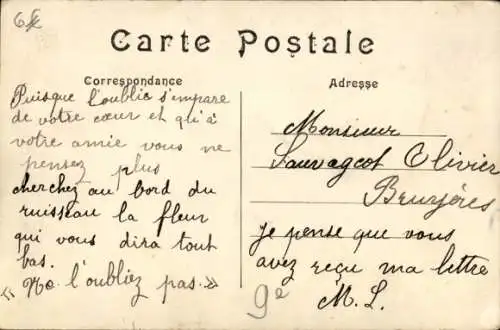 6 fc
Carte Postale
Correspondance
Adresse
Puisque l'oublie s'empare
de votre cœur et qu'à
votre amie vous ne
pensez plus
cherchez au bord du
ruisseau la fleur
qui vous dira tout
bas.
« Ne l'oubliez pas. »
Monsieur
Sauvageot Olivier
Bruyères
je pense que vous
avez reçu ma lettre
M. L.
9e